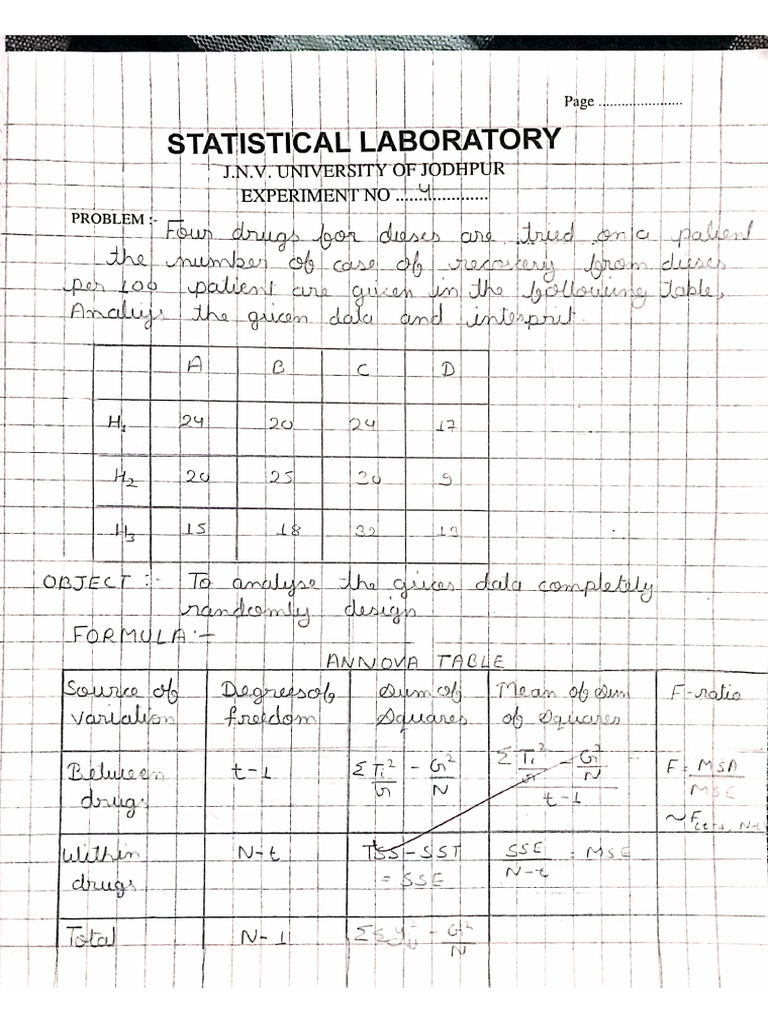 Page ......................
STATISTICAL LABORATORY
J.N.V. UNIVERSITY OF JODHPUR
EXPERIMENT NO ......4...............
PROBLEM :- Four drugs for dieses are tried on a patient
the number of case of recovery from dieses
per 100 patient are given in the following table,
the given data and interprit.
A B C D
H1 24 20 24 17
H2 20 25 30 9
H3 15 18 32 13
OBJECT :- To analyse the data completely
randomly design
FORMULA :-
ANNOVA TABLE
Source of variation Degrees of freedom Sum of Squares Mean of Sum of Squares F-ratio
Between drugs t-1 ΣTi²/r - G²/N (ΣTi²/r - G²/N)/(t-1) F = MSA/MSE
Within drugs N-t TSS-SST = SSE SSE/(N-t) = MSE
Total N-1 ΣΣyij² - G²/N